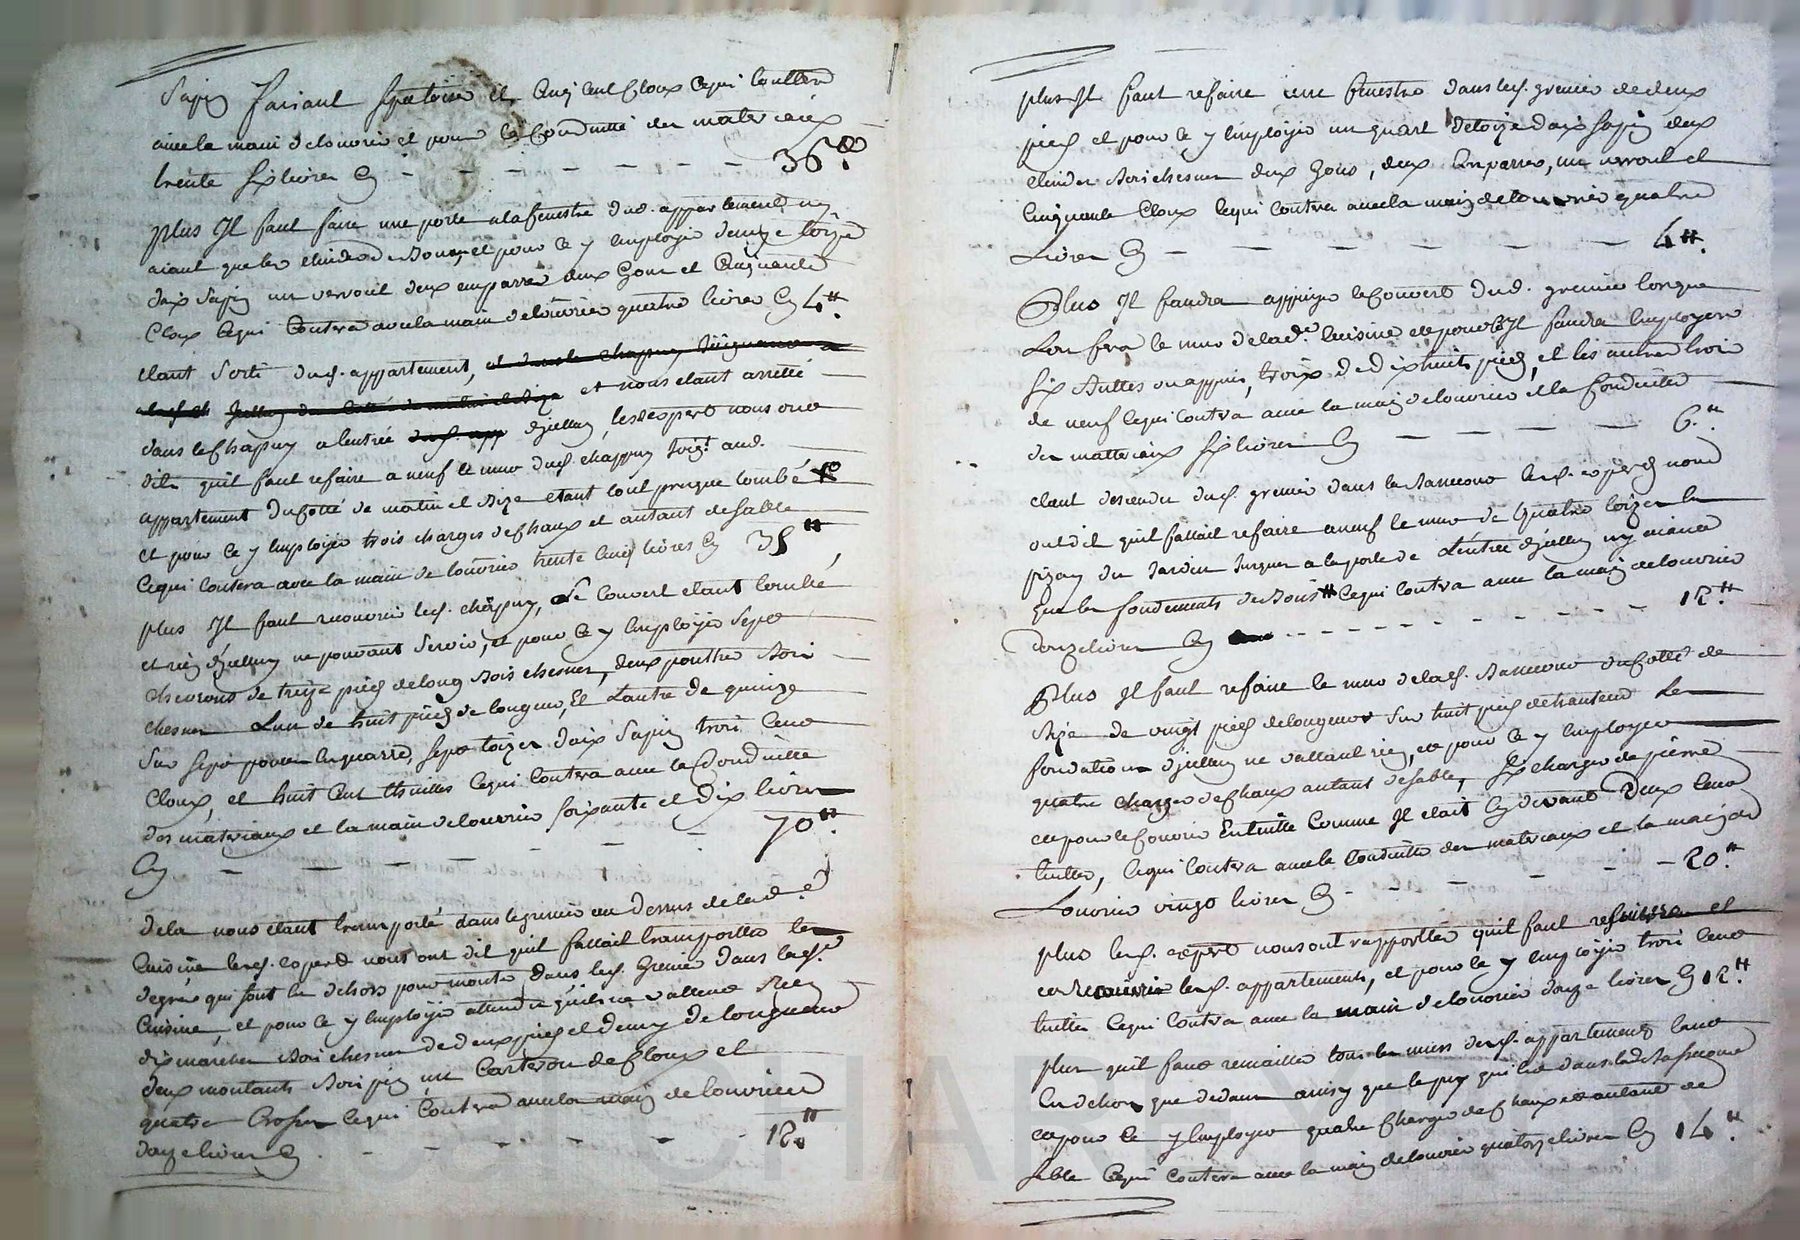 Sapin faisant sept toises et cinq cent cloux ce qui couttera
avec la main de louvrier et pour la conduitte des materiaux
trente six livres Cy - - - - - - 36.ᵗᵗ
plus Il faut faire une porte a la fenestre dud. appartement ny
aiant que les elindes de Bois, et pour ce y employer demye toize
daix sapin un verrouil deux emparres deux gons et Cinquante
Cloux ce qui Contera avec la main de louvrier quatre livres Cy 4.ᵗᵗ
etant sorti dud. appartement, et nous etant arretté
dans le Chapuy a lentrée dicelluy, lesd. expert nous ont
dit quil faut refaire a neuf le mur dud. chappuy joig.ᵗ aud.
appartement du Cotté de matin et Bize etant tout presque tombé
et pour ce y employer trois charges de chaux et autant de sable
Ce qui Contera avec la main de louvrier trente cinq livres Cy 35ᵗᵗ
plus Il faut recouvrir led. chapuy, Le Couvert etant tombé
et rien dicelluy ne pouvant servir, et pour ce y employer sept
chevrons de treize pieds de long Bois chesne, deux pouttre Bois
chesne Lun de huit pieds de longueur, Et Lautre de quinze
sur sept pouces en quarré, sept toizes daix Sapin trois Cent
Cloux, et huit Cent thuilles Ce qui Contera avec la Conduitte
des materiaux et la main de louvrier soixante et dix livres
Cy - - - - - 70ᵗᵗ.
dela nous etant transporté dans le grenier au dessus de lad.ᵉ
Cuisine lesd. expert nous ont dit quil fallait transporter les
degrés qui sont en dehors pour monter dans led. Grenier dans lad.ᵉ
Cuisine, et pour ce y employer attendu quils ne vallent Rien
dix marches Bois chesne de deux pieds et demy de longueur
deux montants Bois pin un Carteron de Cloux et
quatre Crosses ce qui Contera avec la main de louvrier
douze livres Cy - - - - - 12.ᵗᵗ
plus Il faut refaire une fenestre dans led. grenier de deux
pieds et pour ce y employer un quart de toize daix sapin deux
elindes Bois chesne deux gons, deux Emparres, un verrouil et
Cinquante Cloux ce qui Contera avec la main de louvrier quatre
Livres Cy - - - - - 4ᵗᵗ.
Plus Il faudra appuyer le Couvert dud. grenier lorsque
Lon fera le mur de lad.ᵉ Cuisine et pour ce Il faudra employer
six Buttes ou appuis, trois de dix huit pieds, et les autres trois
de neuf ce qui Contera avec la main de louvrier et la Conduitte
des matteriaux six livres Cy - - - - 6.ᵗᵗ
etant descendu dud. grenier dans la Bassecour lesd. experts nous
ont dit quil fallait refaire a neuf le mur de quatre toizes en
pizay du Jardin jusques a la porte de Lentrée dicelluy ny aiant
que les fondements de Bons ce qui Contera avec la main de louvrier
douze livres Cy - - - - - - 12.ᵗᵗ
Plus Il faut refaire le mur de lad. Basseconr du Cotté de
Bize de vingt pieds de longueur sur huit pieds de hauteur Les
fondations dicelluy ne vallant rien, et pour ce y employer
quatre charges de chaux autant de sable, six charges de pierre
et pour le Couvrir En tuille Comme Il etait Cy devant Deux Cent
tuilles, ce qui Contera avec la Conduitte des materiaux et la main de
Louvrier vingt livres Cy - - - - - 20.ᵗᵗ
plus lesd. expert nous ont rapporttés quil faut et
lesd. appartements, et pour ce y employer trois Cent
tuilles ce qui Contera avec la main de louvrier douze livres Cy 12.ᵗᵗ
plus quil faut remailler tous les murs desd. appartements tant
En dehors que dedans ainsy que le puy qui est dans lad. Bassecour
et pour ce y Employer quatre Charges de Chaux et autant de
sable Ce qui Contera avec la main de louvrier quatorze livres Cy 14.ᵗᵗ